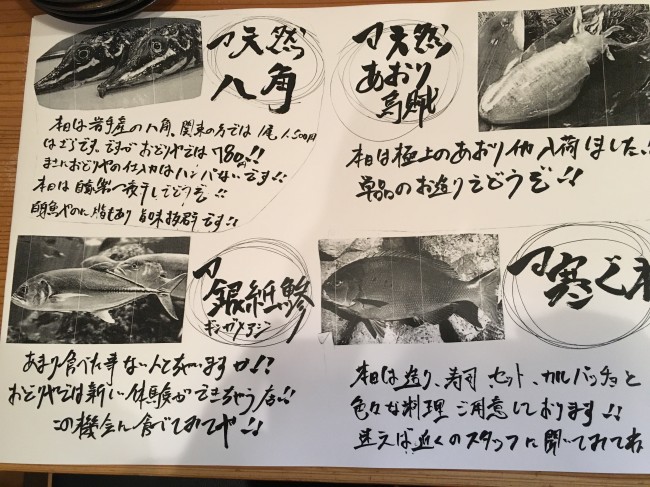 天然
八角
本日は岩手産の八角、関東の方では1尾1,500円
はするです。ですが おどりやでは 780円!!
まさにおどりやの仕入力はハンパないです!!
本日は自家製一夜干しでどうぞ!!
白身魚やのに脂もあり 旨味抜群です!!
天然
あおり
烏賊
本日は極上のあおりイカ入荷しました。
単品のお造りでどうぞ!!
銀紙鯵
ギンガメアジ
あまり食べた事ない人もちゃいますか!?
おどりやでは新しい体験ができちゃう店!!
この機会に食べてみてや!!
寒
本日は造り、寿司セット、カルパッチョと
色々な料理ご用意しております!!
迷えば近くのスタッフに聞いてみてね